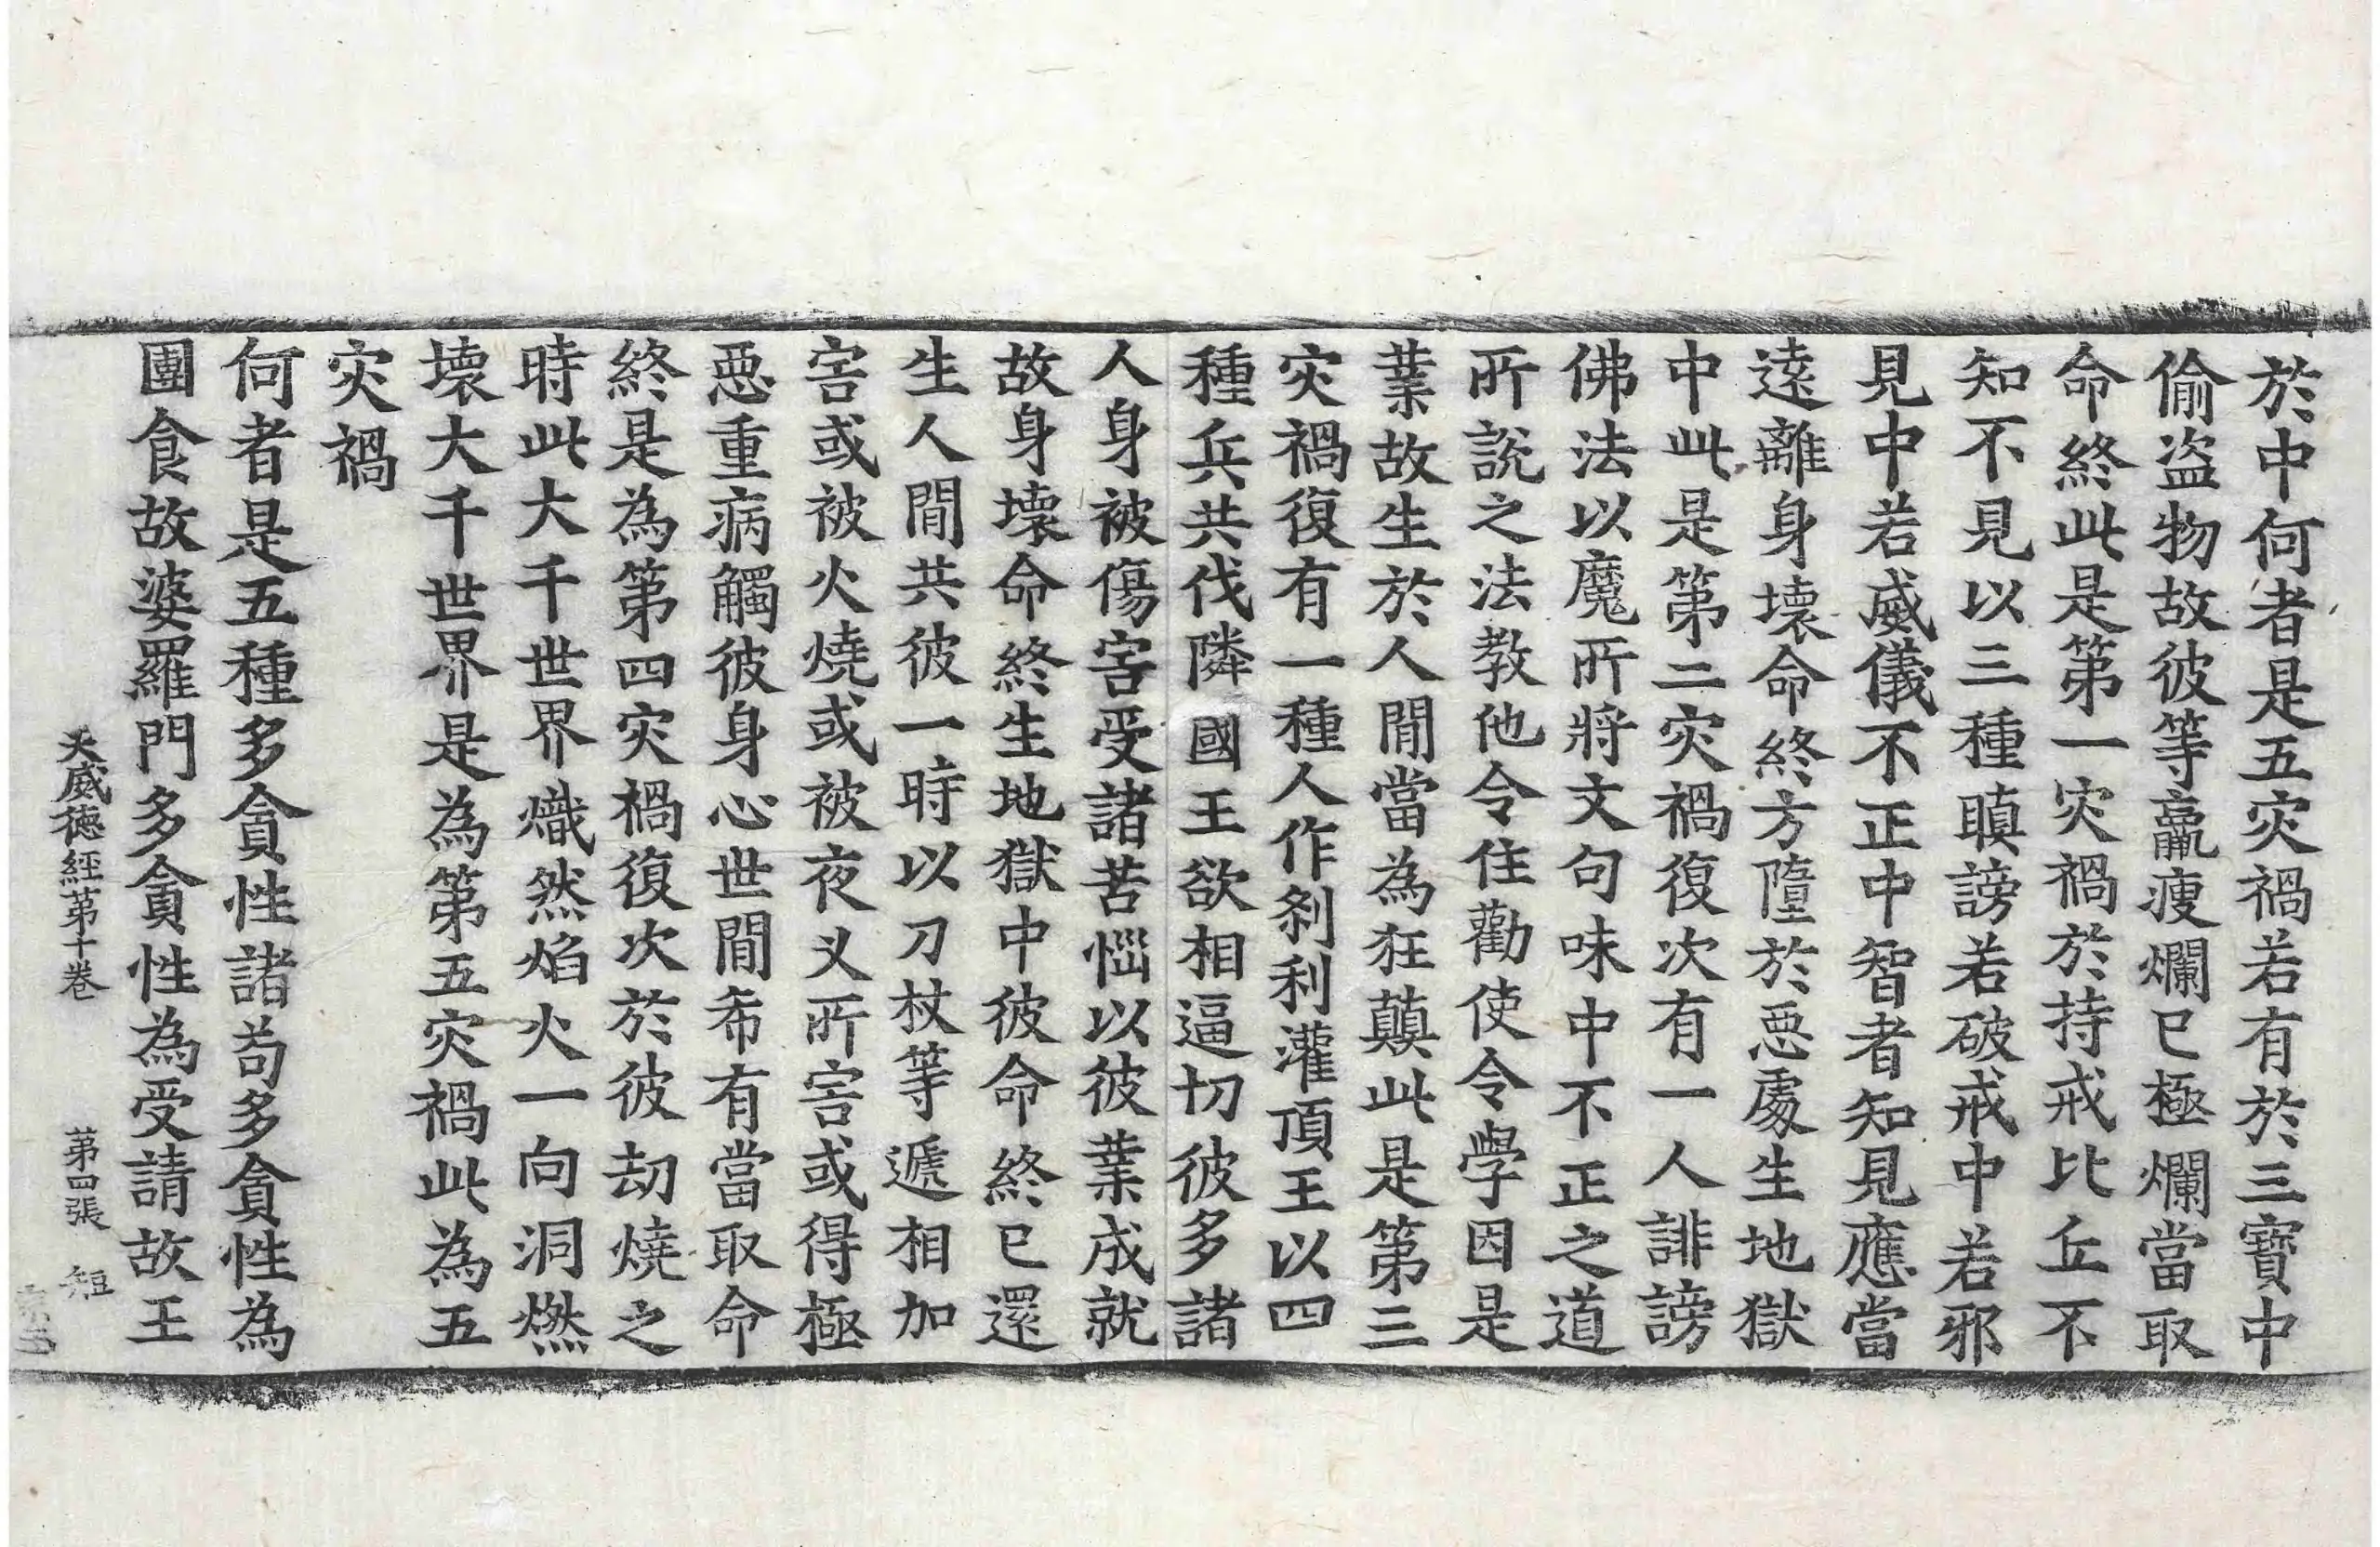 於中何者是五灾禍若有於三寶中
偷盗物故彼等羸瘦爛已極爛當取
命終此是第一灾禍於持戒比丘不
知不見以三種瞋謗若破戒中若邪
見中若威儀不正中智者知見應當
遠離身壞命終方墮於惡處生地獄
中此是第二灾禍復次有一人誹謗
佛法以魔所將文句味中不正之道
所說之法教他令住勸使令學因是
業故生於人間當為狂顛此是第三
灾禍復有一種人作剎利灌頂王以四
種兵共伐隣國王欲相逼切彼多諸
人身被傷害受諸苦惱以彼業成就
故身壞命終生地獄中彼命終已還
生人間共彼一時以刀杖等遞相加
害或被火燒或被夜叉所害或得極
惡重病觸彼身心世間希有當取命
終是為第四灾禍復次於彼劫燒之
時此大千世界熾然焰火一向洞燃
壞大千世界是為第五灾禍此為五
灾禍
何者是五種多貪性諸苟多貪性為
團食故婆羅門多貪性為受請故王
大威德經第十卷 第四張 短